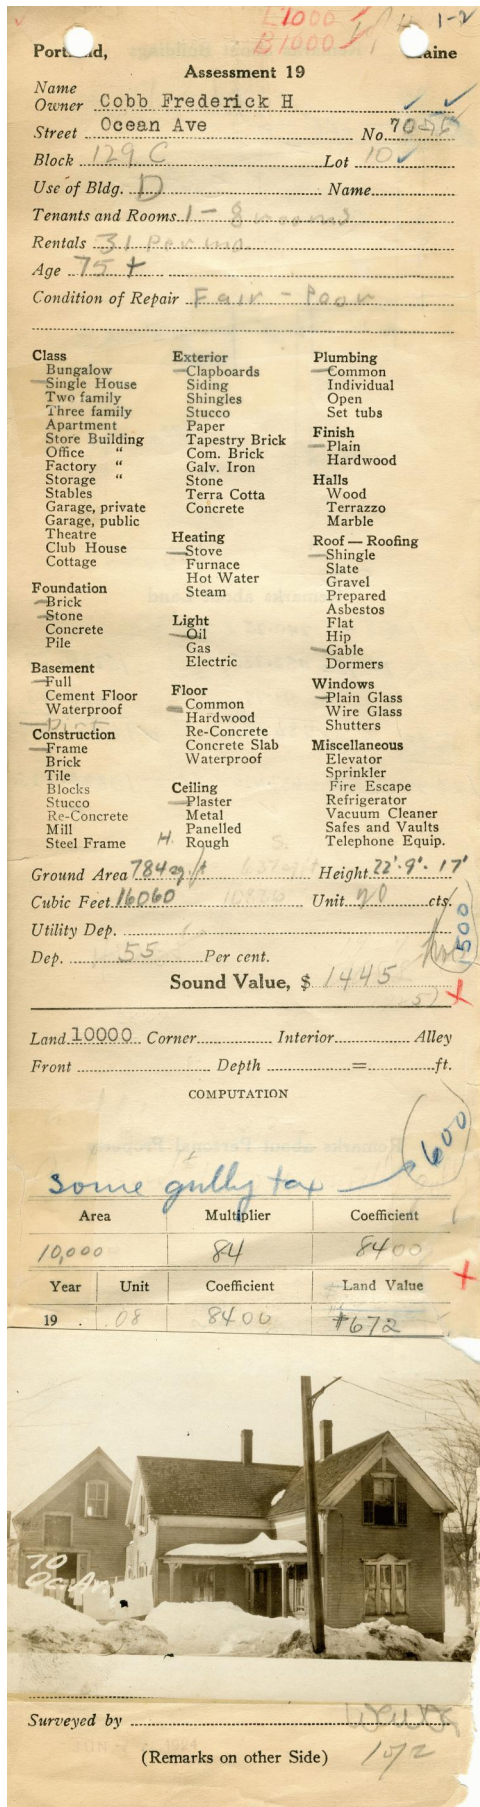 L1000
B1000
1-2
Assessment 19
Name
Owner Cobb Frederick H
Street Ocean Ave No. 70
Block 129 C Lot 10
Use of Bldg. D Name
Tenants and Rooms 1 - 8 rooms
Rentals 31 Per mo.
Age 75 +
Condition of Repair Fair - Poor
Class
Bungalow
Single House
Two family
Three family
Apartment
Store Building
Office "
Factory "
Storage "
Stables
Garage, private
Garage, public
Theatre
Club House
Cottage
Foundation
Brick
Stone
Concrete
Pile
Basement
Full
Cement Floor
Waterproof
Dirt
Construction
Frame
Brick
Tile
Blocks
Stucco
Re-Concrete
Mill
Steel Frame
Exterior
Clapboards
Siding
Shingles
Stucco
Paper
Tapestry Brick
Com. Brick
Galv. Iron
Stone
Terra Cotta
Concrete
Heating
Stove
Furnace
Hot Water
Steam
Light
Oil
Gas
Electric
Floor
Common
Hardwood
Re-Concrete
Concrete Slab
Waterproof
Ceiling
Plaster
Metal
Panelled
Rough
Plumbing
Common
Individual
Open
Set tubs
Finish
Plain
Hardwood
Halls
Wood
Terrazzo
Marble
Roof — Roofing
Shingle
Slate
Gravel
Prepared
Asbestos
Flat
Hip
Gable
Dormers
Windows
Plain Glass
Wire Glass
Shutters
Miscellaneous
Elevator
Sprinkler
Fire Escape
Refrigerator
Vacuum Cleaner
Safes and Vaults
Telephone Equip.
H. S.
Ground Area 784 sq. ft Height 22'-9"-17'
Cubic Feet 16060 Unit 20 cts.
Utility Dep.
Dep. 55 Per cent.
1500
Sound Value, $ 1445
Land 10000 Corner Interior Alley
Front Depth = ft.
COMPUTATION
some gully tax 600
Area Multiplier Coefficient
10,000 84 8400
Year Unit Coefficient Land Value
19 .08 8400 $672
70
Oc. Av.
Surveyed by
(Remarks on other Side)